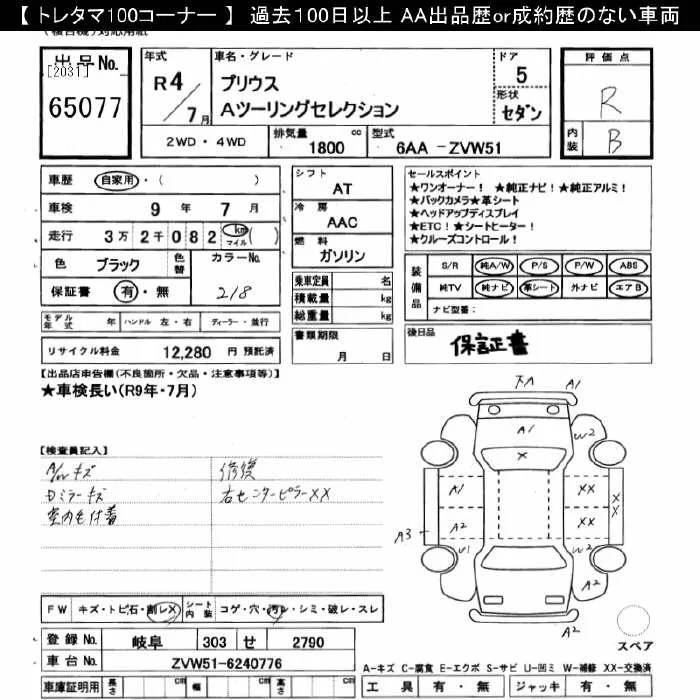 【 トレタマ100コーナー 】 過去100日以上 AA出品歴or成約歴のない車両
出品No.
[2031]
65077
年式
R4/7月
車名・グレード
プリウス
Aツーリングセレクション
ドア
5
形状
セダン
2WD・4WD
排気量
1800 cc
型式
6AA -ZVW51
評価点
R
内装
B
車歴 自家用・( )
車検 9年 7月
走行 3万 2千 0 8 2 km マイル( )
色 ブラック 色替 カラーNo.
保証書 有・無 218
モデル年式 年 ハンドル 左・右 ディーラー・並行
リサイクル料金 12,280 円 預託済
シフト
AT
冷房
AAC
燃料
ガソリン
乗車定員 名
積載量 kg
総重量 kg
書類期限
月 日
セールスポイント
★ワンオーナー！ ★純正ナビ！★純正アルミ！
★バックカメラ★革シート
★ヘッドアップディスプレイ
★ETC！★シートヒーター！
★クルーズコントロール！
装備品
S/R 純A/W P/S P/W ABS
純TV 純ナビ 革シート 外ナビ エアB
ナビ型番：
後日品
保証書
【出品店申告欄(不良箇所・欠品・注意事項等)】
★車検長い(R9年-7月)
【検査員記入】
A/W キズ
Dミラーキズ
室内毛付着
修復
右センターピラーXX
下A A1
A1 W2
X
A1 XX XX
A2 XX
A3
U1 W2
A2
A2
スペア
FW キズ・トビ石・割レX シート内装 コゲ・穴・汚レ・シミ・破レ・スレ
登録No. 岐阜 303 せ 2790
車台No. ZVW51-6240776
車庫証明用 長さ cm 幅 cm 高さ cm
A-キズ C-腐食 E-エクボ S-サビ U-凹ミ W-補修 XX-交換済
工具 有・無 ジャッキ 有・無